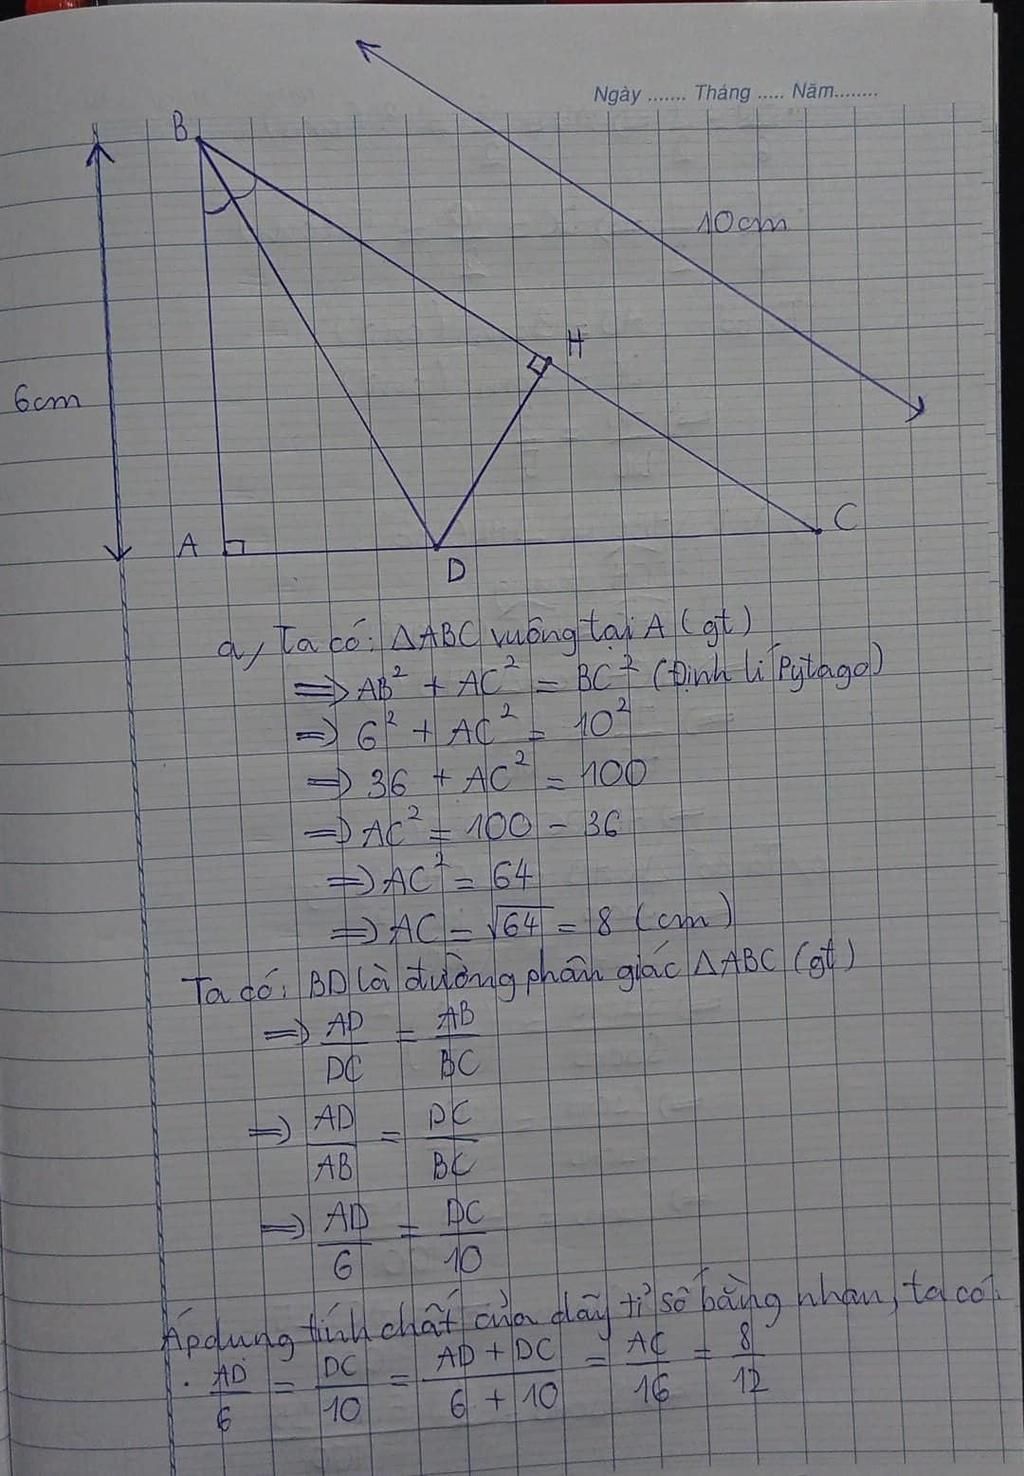 Ngày ....... Tháng ..... Năm........
B
10cm
H
6cm
A
D
C
a, Ta có: ΔABC vuông tại A (gt)
=> AB² + AC² = BC² (Định lí Pytago)
=> 6² + AC² = 10²
=> 36 + AC² = 100
=> AC² = 100 - 36
=> AC² = 64
=> AC = √64 = 8 (cm)
Ta có: BD là đường phân giác ΔABC (gt)
=> AD/DC = AB/BC
=> AD/AB = DC/BC
=> AD/6 = DC/10
Áp dụng tính chất của dãy tỉ số bằng nhau, ta có:
. AD/6 = DC/10 = AD + DC/6 + 10 = AC/16 = 8/12